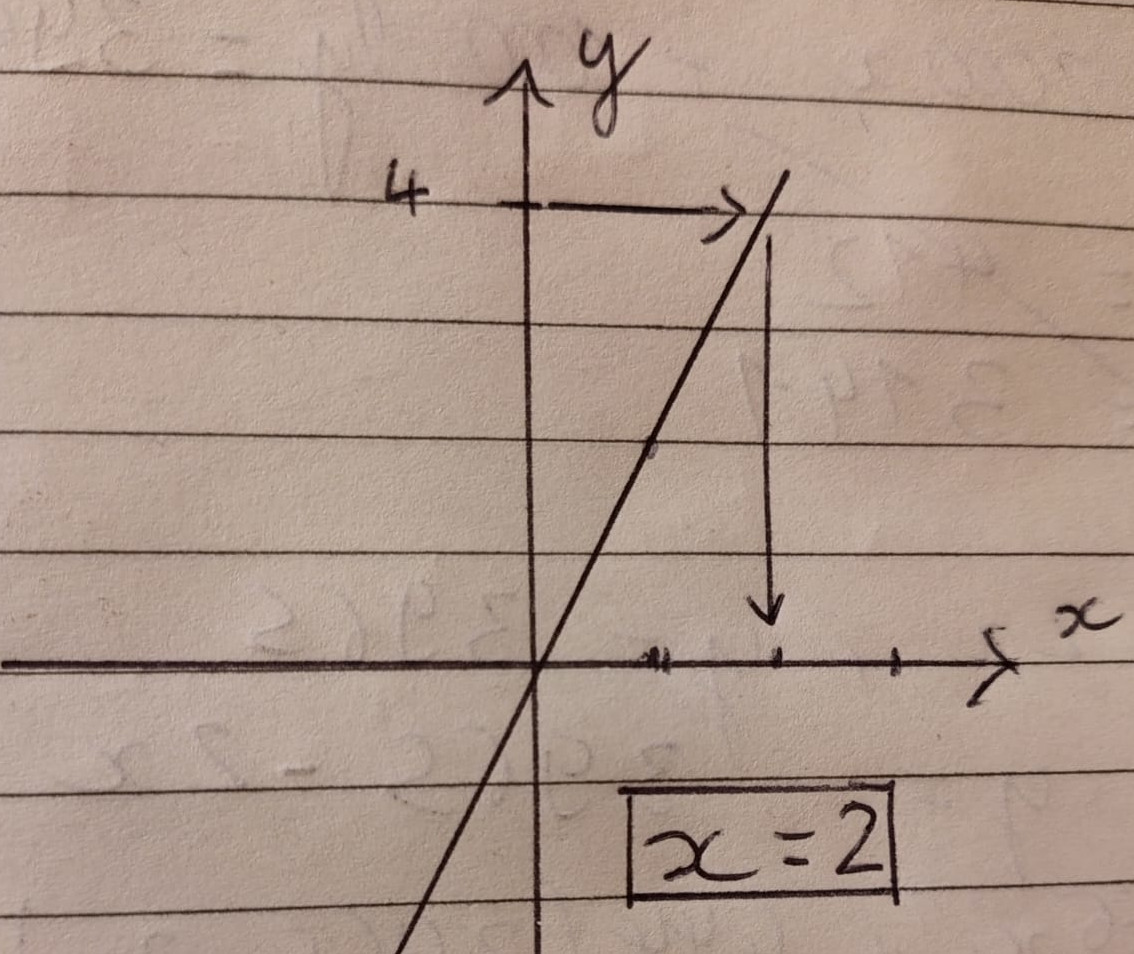 y
4
x
x = 2